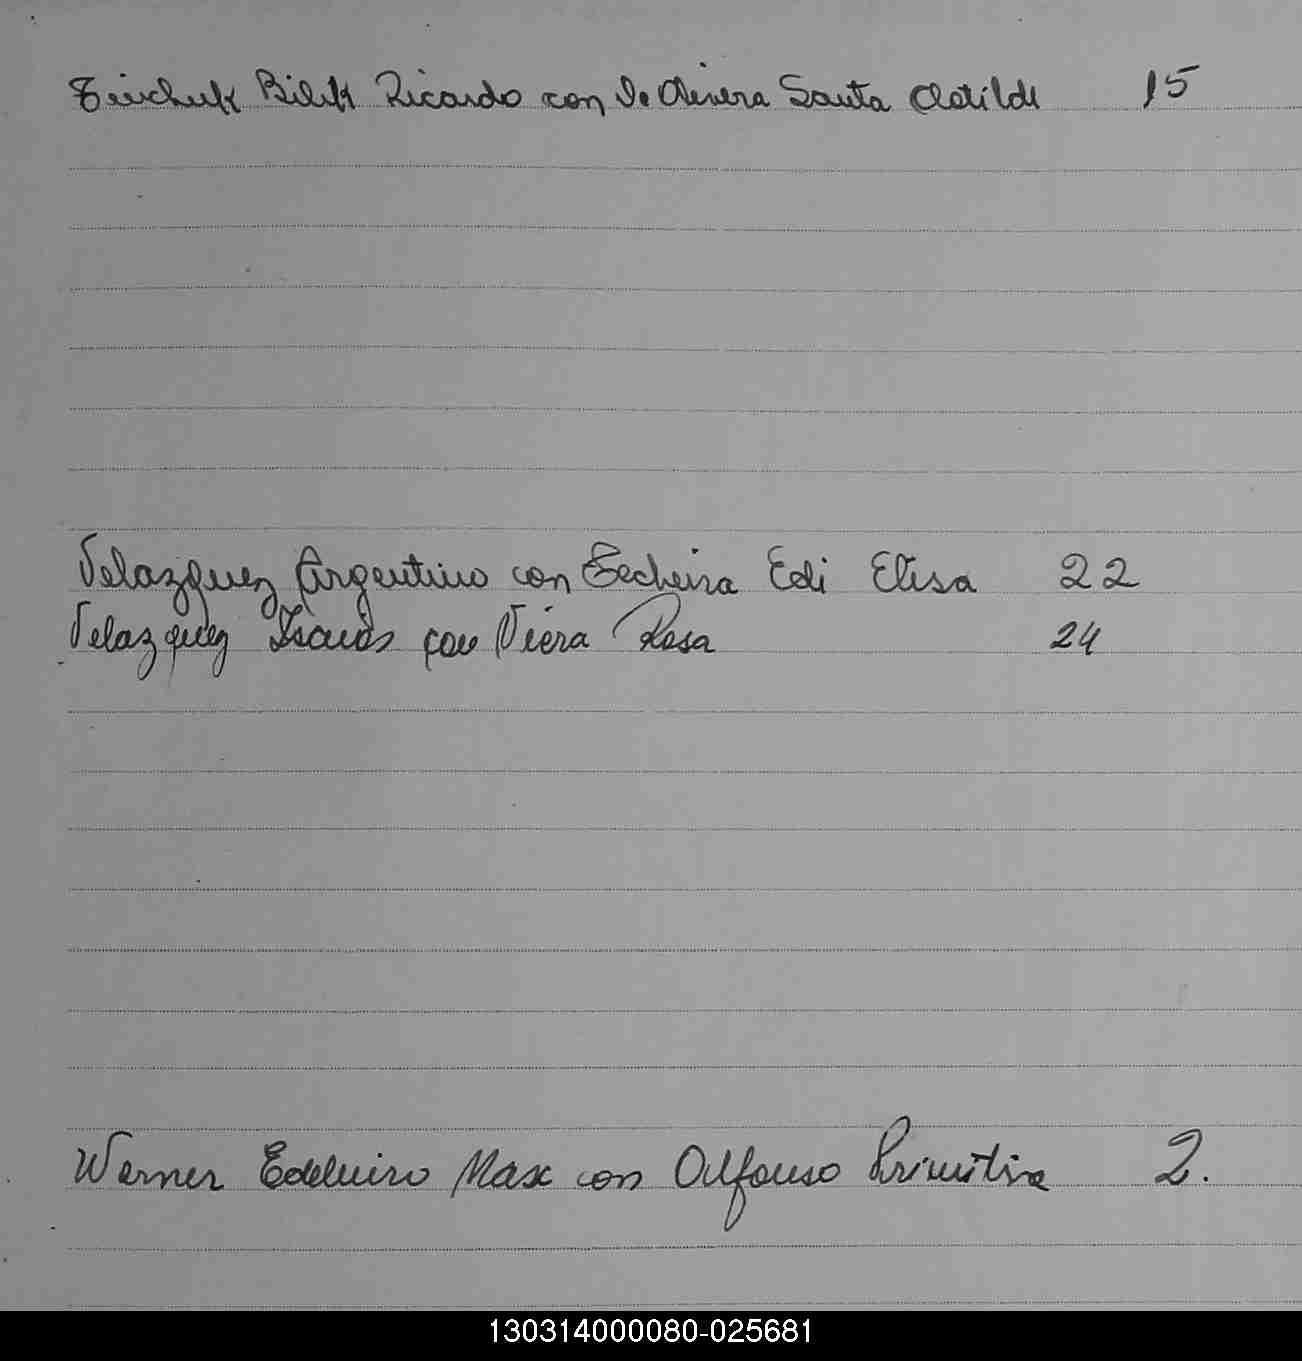 Ricardo con De Olivera Santa Clotilde 15
Velazquez Argentino con Edi Elisa 22
Velazquez Isaias con Viera Rosa 24
Werner Edelmiro Max con Alfonso Primitiva 2.
130314000080-025681